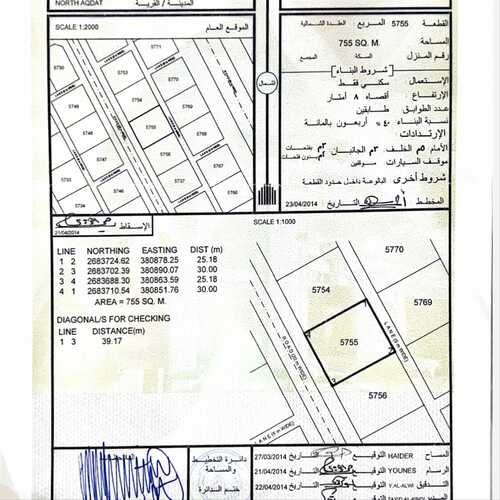 NORTH AQDAT
المدينة / القرية
SCALE 1:2000
الموقع العام
5730
5749
5748
5747
5746
5755
5754
5755
5756
5771
5770
5769
5768
القطعة 5755 المربع العقدة الشمالية
المساحة 755 SQ. M.
رقم المنزل السكة المجمع
شروط البناء
الإستعمال: سكني فقط
الإرتفاع: أقصاه ٨ أمتار
عدد الطوابق طابقين
نسبة البناء ٤٠ أربعون بالمائة
الإرتدادات:
الأمام ٥م الخلف ٣م الجانبان ٣م
موقف السيارات موقفين
شروط أخرى البالوعة داخل حدود القطعة
المخطط التاريخ 23/04/2014
شمال
الإسقاط
21/04/2014
LINE NORTHING EASTING DIST (m)
1 2 2683724.62 380878.25 25.18
2 3 2683702.39 380890.07 30.00
3 4 2683688.30 380863.59 25.18
4 1 2683710.54 380851.76 30.00
AREA = 755 SQ. M.
DIAGONAL/S FOR CHECKING
LINE DISTANCE(m)
1 3 39.17
SCALE 1:1000
5770
5754
5769
5755
5756
LANE (6 m WIDE)
دائرة التخطيط
والمساحة
ختم الدائرة
المساح HAIDER التوقيع التاريخ 27/03/2014
الرسام YOUNES التوقيع التاريخ 21/04/2014
التدقيق Y.AL-ALWI التوقيع التاريخ 22/04/2014